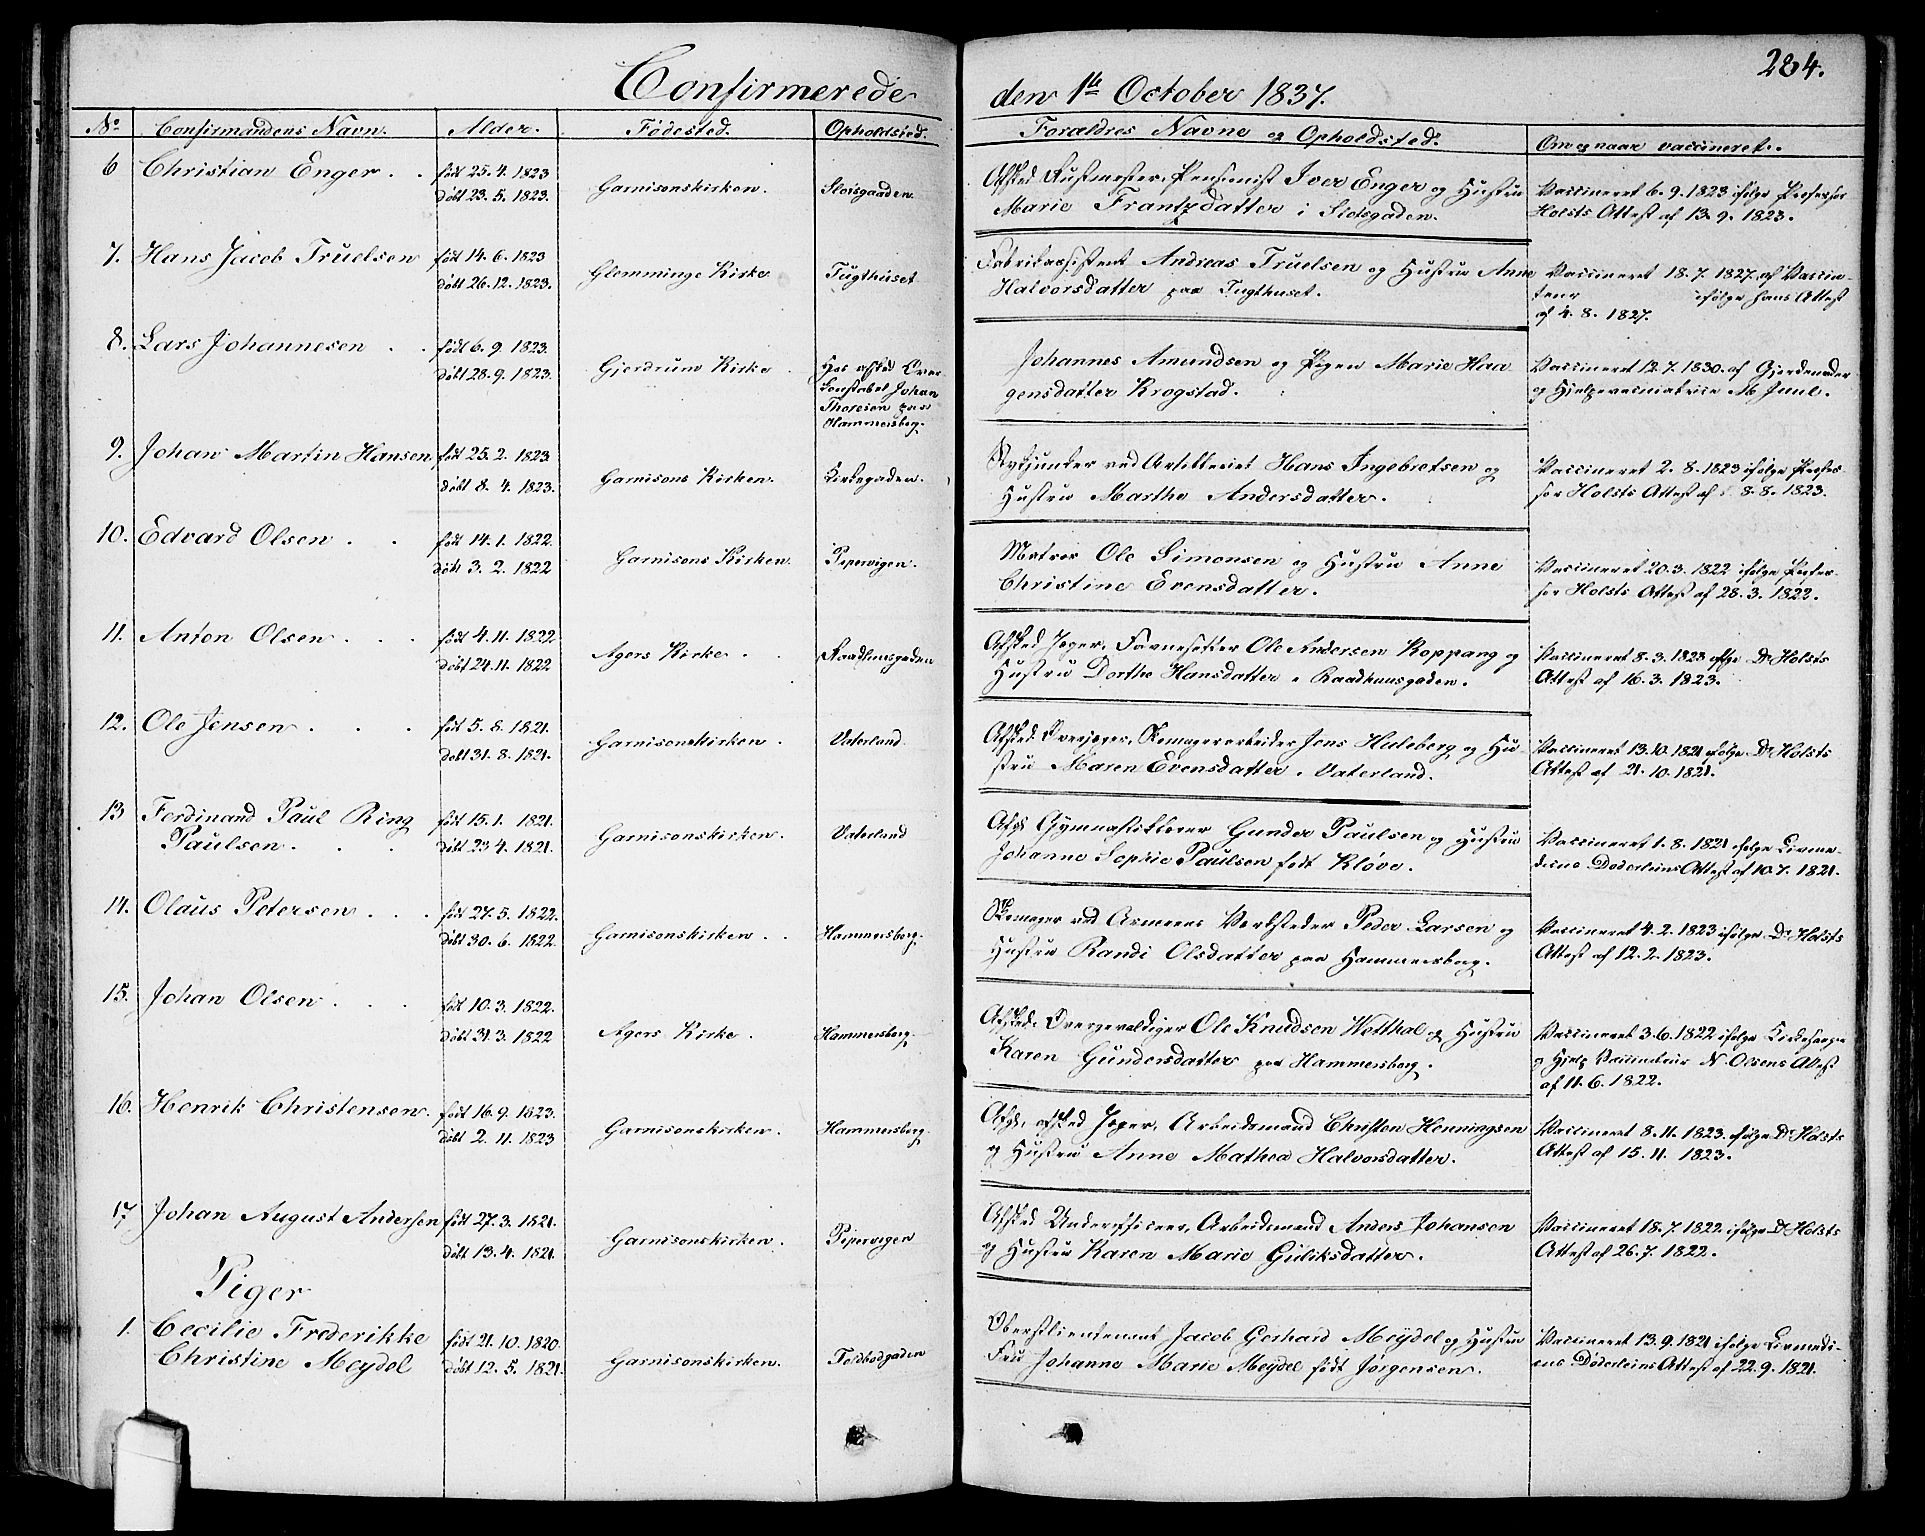 Confirmerede den 1te October 1837.
284.
No. Confirmandens Navn. Alder. Fødested. Opholdsted. Forældres Navne og Opholdsted. Om og naar vaccineret.
6 Christian Enger . . født 25. 4. 1823 Garnisonskirken. Slotsgaden. Afsked Rustmester, Pensionist Iver Enger og Hustru Vaccineret 6. 9. 1823 ifølge Professor
døbt 23. 5. 1823. Marie Frantzdatter i Slotsgaden. Holsts Attest af 13. 9. 1823.
7. Hans Jacob Truelsen født 14. 6. 1823 Glemminge Kirke Tugthuset Fabrikassistent Andreas Truelsen og Hustru Anne Vaccineret 18. 7. 1827. af Vaccin-
døbt 26. 12. 1823. Halvorsdatter paa Tugthuset. ifølge hans Attest
af 4. 8. 1827.
8. Lars Johannesen . . født 6. 9. 1823. Gjerdrum Kirke Hos afsked Over Johannes Amundsen og Pigen Marie Haa Vaccineret 12. 7. 1830. af Gjordemoder
døbt 28. 9. 1823. Konstabel Johan gensdatter Krogstad. og Hjelpevaccinatrice M Juul.
Thoresen paa
Hammersborg.
9. Johan Martin Hansen født 25. 2. 1823 Garnisons Kirken. Kirkegaden. ved Artilleriet Hans Ingebretsen og Vaccineret 2. 8. 1823 ifølge Profes-
døbt 8. 4. 1823. Hustru Marthe Andersdatter. sor Holsts Attest af 8. 8. 1823.
10. Edvard Olsen . . født 14. 1. 1822. Garnisons Kirken. Pipervigen. Matros Ole Simonsen og Hustru Anne Vaccineret 20. 3. 1822 ifølge Profes-
døbt 3. 2. 1822 Christine Evensdatter. sor Holsts Attest af 28. 3. 1822.
11. Anton Olsen . . . født 4. 11. 1822 Agers Kirke . . Raadhuusgaden Afsked Jæger, Ole Andersen Koppang og Vaccineret 8. 3. 1823 ifølge Dr Holsts
døbt 24. 11. 1822 Hustru Dorthe Hansdatter i Raadhuusgaden. Attest af 16. 3. 1823.
12. Ole Jensen . . . født 5. 8. 1821. Garnisonskirken. Vaterland. Afsked Overjæger, Skomagerarbeider Jens Huleberg og Hu Vaccineret 13. 10. 1821 ifølge Dr Holsts
døbt 31. 8. 1821. stru Maren Evensdatter i Vaterland. Attest af 21. 10. 1821.
13 Ferdinand Paul Ring født 15. 1. 1821. Garnisonskirken. Vaterland Afgd Gymnastiklærer Gunder Paulsen og Hustru Vaccineret 1. 8. 1821 ifølge Livme-
Paulsen . . . døbt 23 4. 1821. Johanne Sophie Paulsen født Kløve. dicus Døderleins Attest af 10. 7. 1821.
14. Olaus Petersen . . . født 27. 5. 1822. Garnisonskirken . . Hammersborg. Skomager ved Armeens Værksteder Peder Larsen og Vaccineret 4. 2. 1823 ifølge Dr Holsts
døbt 30. 6. 1822. Hustru Randi Olsdatter paa Hammersborg. Attest af 12. 2. 1823.
15. Johan Olsen . . . født 10. 3. 1822. Agers Kirke . Hammersborg. Afsked. Overgevaldiger Ole Knudsen Wetthal og Hustru Vaccineret 3. 6. 1822 ifølge Kirkesanger
døbt 31. 3. 1822 Karen Gundersdatter paa Hammersborg. og Hjelp Vaccinateur N. Olsens Attest
af 11. 6. 1822.
16. Henrik Christensen. født 16. 9. 1823. Garnisonskirken. Hammersborg. Afgd. afsked Jæger, Arbeidsmand Christen Henningsen Vaccineret 8. 11. 1823. ifølge Dr Holsts
døbt 2. 11. 1823 og Hustru Anne Mathea Halvorsdatter. Attest af 15. 11. 1823.
17 Johan August Andersen født 27. 3. 1821. Garnisonskirken. Pipervigen Afsked Underofficeer, Arbeidsmand Anders Johansen Vaccineret 18. 7. 1822. ifølge Dr Holsts
døbt 13. 4. 1821. og Hustru Karen Marie Guliksdatter. Attest af 26. 7. 1822.
Piger
1. Cecilie Frederikke født 21. 10. 1820. Garnisonskirken. Toldbodgaden Oberstlieutenant Jacob Gerhard Meydel og Hustru Vaccineret 13. 9. 1821 ifølge Livmedi-
Christine Meydel døbt 12. 5. 1821. Fru Johanne Marie Meydel født Jørgensen. cus Døderleins Attest af 22. 9. 1821.